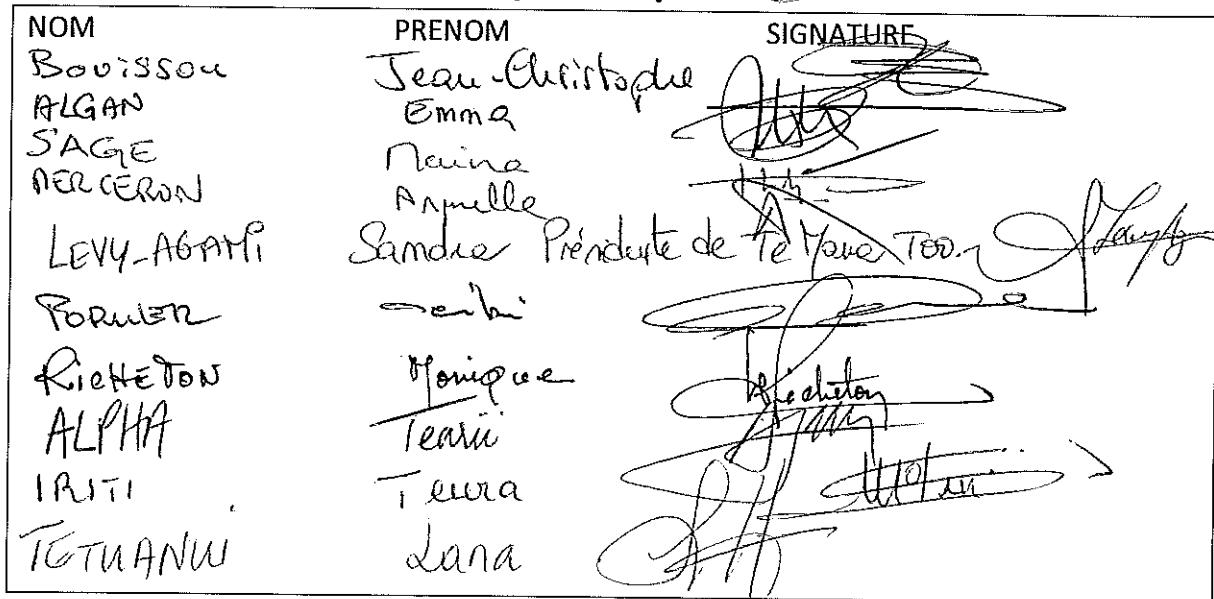 NOM PRENOM SIGNATURE
Bouissou Jean-Christophe
ALGAN Emma
SAGE Maina
MERCERON Armelle
LEVY-AGAMI Sandra Présidente de Te Mana Too.
Richeton
RICHETON Monique
ALPHA Tearii
IRITI Teura
TETUANUI Lana